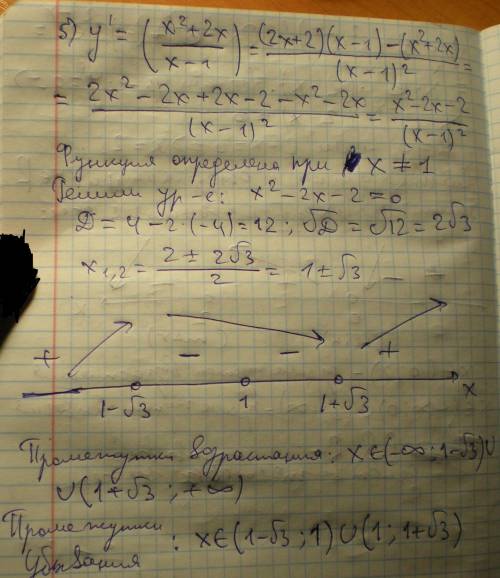 5) y' = (x²+2x / x-1) = (2x+2)(x-1)-(x²+2x) / (x-1)² =
= 2x²-2x+2x-2-x²-2x / (x-1)² = x²-2x-2 / (x-1)²
Функция определена при x ≠ 1
Решим ур-е: x²-2x-2=0
D = 4-2·(-4)=12; √D = √12 = 2√3
x₁,₂ = 2 ± 2√3 / 2 = 1±√3
+ - - +
1-√3 1 1+√3 x
Промежутки возрастания: x∈(-∞;1-√3)∪
∪(1+√3; +∞)
Промежутки
убывания : x∈(1-√3;1)∪(1;1+√3)